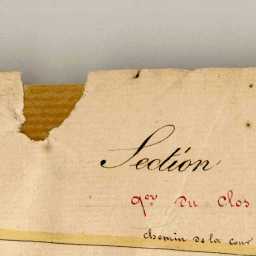 Section
qer Du Clos
chemin de la cour